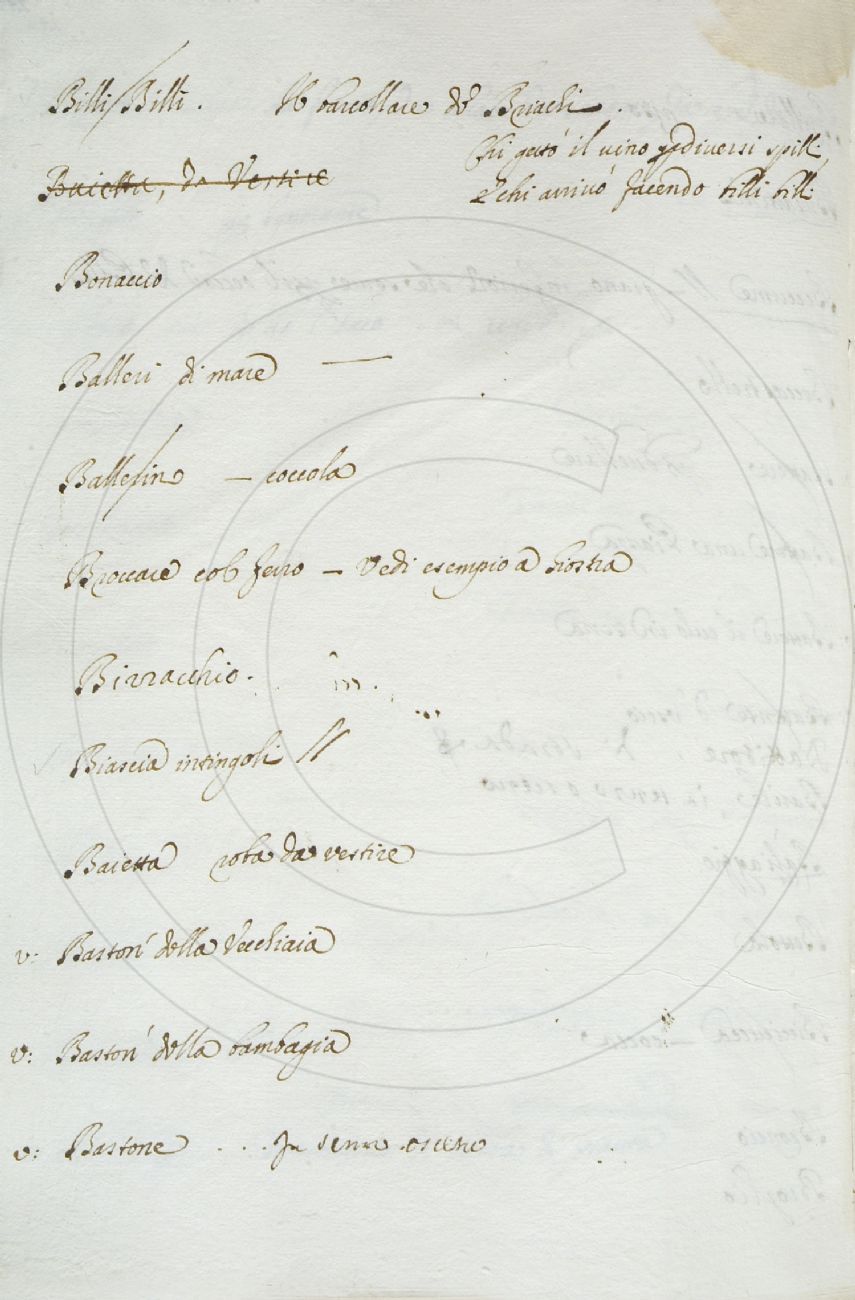 Billi Billi. Il barcollare de' Briachi.
Chi gettò il vino p diversi spilli,
E chi arrivò facendo billi billi
Baietta, da Vestire
Bonaccio
Balleri di mare —
Ballesino — coccola
Broccare col ferro — Vedi esempio a Giostra
Birracchio.
Biascia intingoli //
Baietta roba da vestire
v: Baston' della Vecchiaia
v: Baston' della bambagia
v: Bastone ... In senso osceno